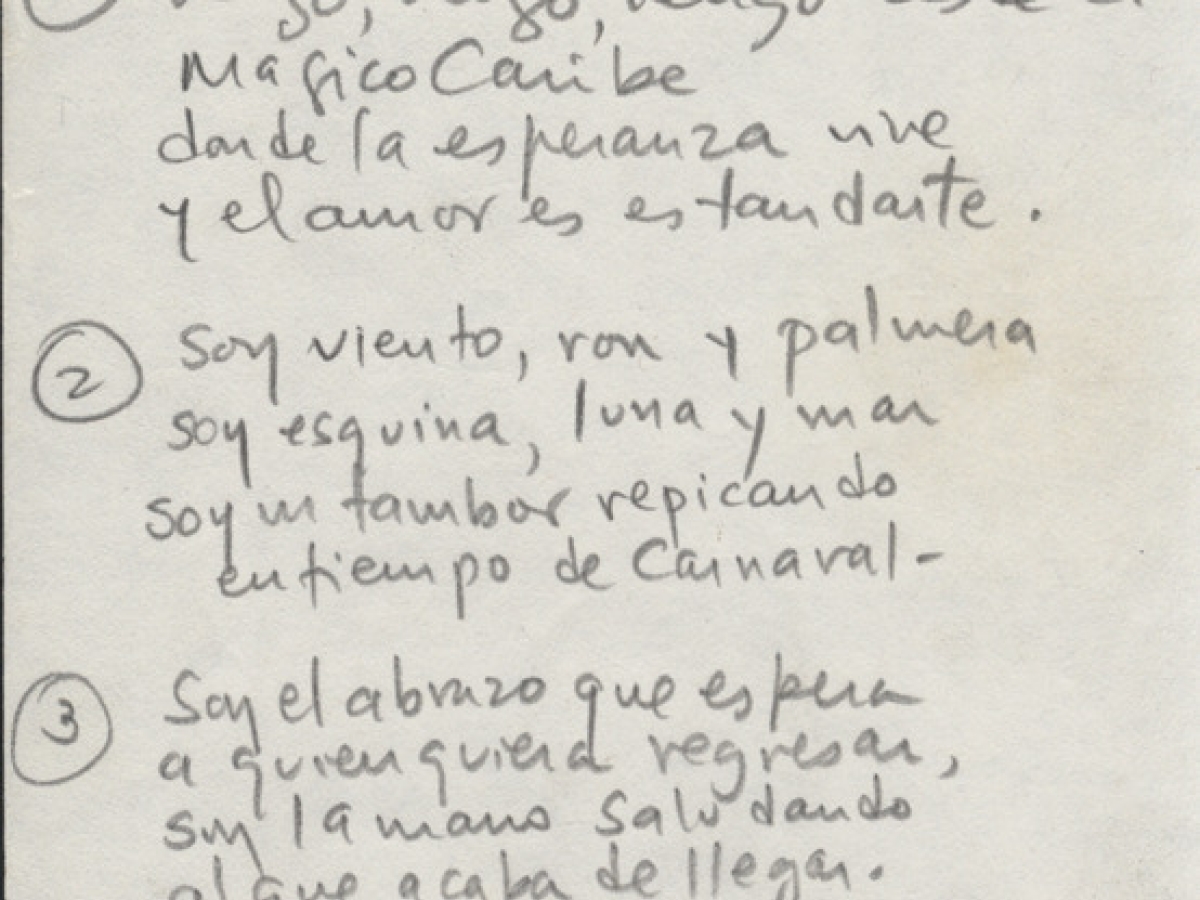 Mágico Caribe
donde la esperanza vive
y el amor es estandarte.
2 Soy viento, ron y palmera
soy esquina, luna y mar
soy un tambor repicando
en tiempo de Carnaval-
3 Soy el abrazo que espera
a quien quiera regresar,
soy la mano saludando
al que acaba de llegar.